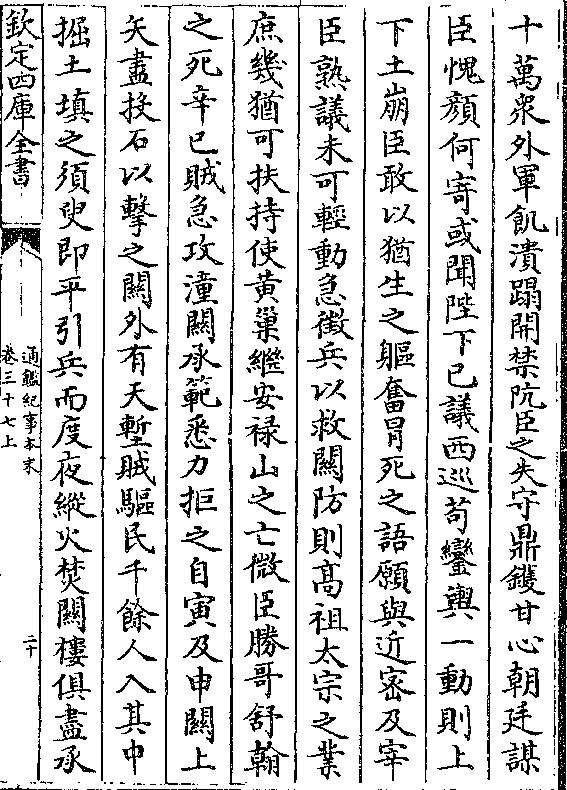 十萬衆外軍飢潰蹋開禁阬臣之失守鼎鑊甘心朝廷謀
臣愧顔何寄或聞陛下已議西巡苟鑾輿一動則上
下土崩臣敢以猶生之軀奮冐死之語願與近密及宰
臣熟議未可輕動急徴兵以救關防則髙祖太宗之業
庶幾猶可扶持使黄巢繼安禄山之亡微臣勝哥舒翰
之死辛已賊急攻潼關承範悉力拒之自寅及申關上
矢盡投石以擊之關外有天塹賊驅民千餘人入其中
掘土填之須臾即平引兵而度夜縱火焚關樓俱盡承
欽定四庫全書
通鑑紀事本末
卷三十七上
二十